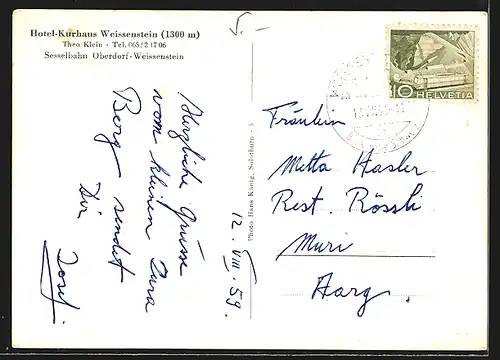 Hotel-Kurhaus Weissenstein (1300 m)
Theo Klein · Tel. 065/2 17 06
Sesselbahn Oberdorf-Weissenstein
5.-
10 HELVETIA
Herzliche Grüsse
vom kleinen Jura
Berg sendet
Dir
Josef.
12. VIII. 59.
Photo Hans König, Solothurn - 5
Fräulein
Metta Hasler
Rest. Rössli
Muri
Aarg.